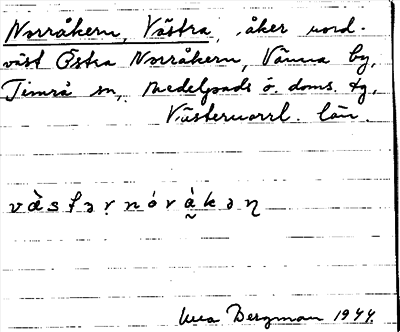 Norråkern, Västra, åker nord-
väst Östra Norråkern, Vänna by,
Timrå sn, Medelpads ö. doms. tg,
Västernorrl. län.
va᷈sƭəṛnórà̰kəɳ
Bergman 1944.